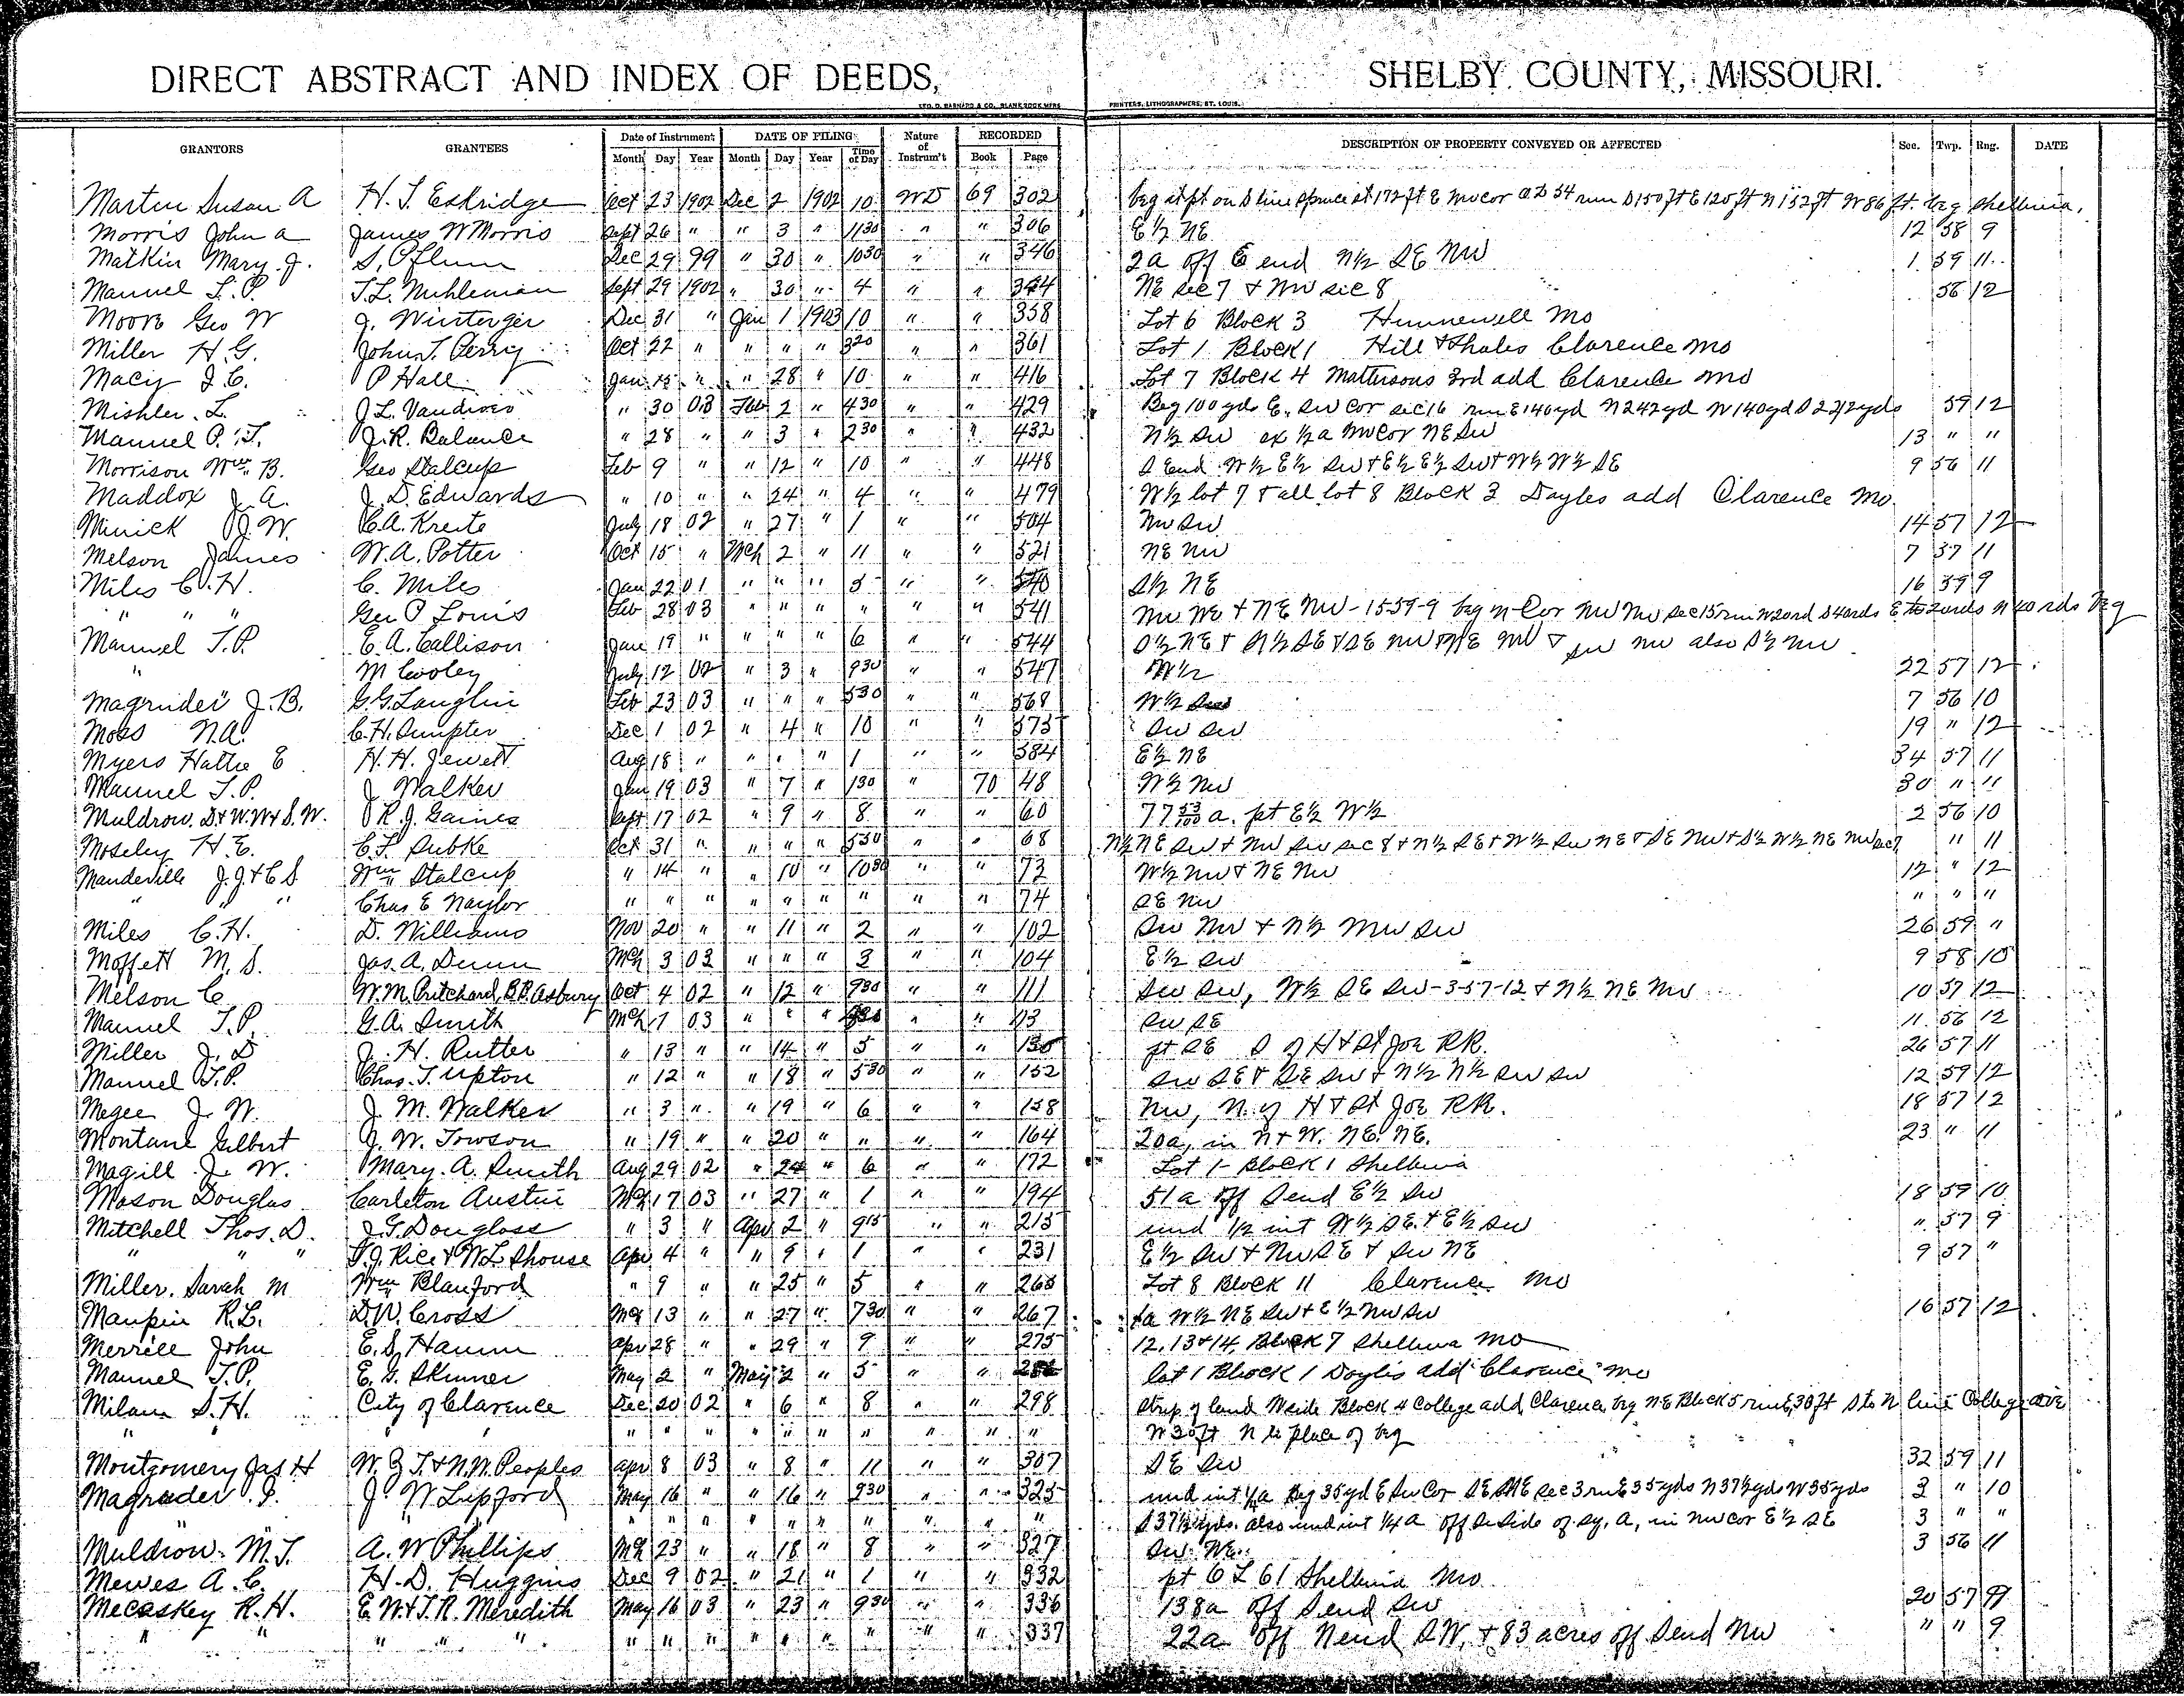 DIRECT ABSTRACT AND INDEX OF DEEDS, SHELBY COUNTY, MISSOURI.
GEO. D. BARNARD & CO., BLANK BOOK MFRS PRINTERS, LITHOGRAPHERS, ST. LOUIS.
GRANTORS GRANTEES Date of Instrument DATE OF FILING Nature of Instrum't RECORDED DESCRIPTION OF PROPERTY CONVEYED OR AFFECTED Sec. Twp. Rng. DATE
Month Day Year Month Day Year Time of Day Book Page
Martin Susan A H. T. Eskridge Oct 23 1902 Dec 2 1902 10 WD 69 302 beg at pt on S line Spruce St 172 ft E NWcor run S 150 ft E 120 ft N 152 ft W 86 ft. beg Shelbina,
Morris John A James W Morris Sept 26 " " 3 " 11 30 " " 306 E½ NE 12 58 9
Matkin Mary J. S. Pflum Dec 29 99 " 30 " 10 30 " " 346 2a off E end N½ SE NW 1 59 11
Manuel T. P. T. L. Muhleman Sept 29 1902 " 30 " 4 " " NE sec 7 & NW sec 8 56 12
Moore Geo W J. Winterger Dec 31 " Jan 1 1903 10 " " 358 Lot 6 Block 3 Hunnewell Mo
Miller H. G. John T. Perry Oct 22 " " " " 3 20 " " 361 Lot 1 Block 1 Hill & Clarence Mo
Macy J. C. P Hall Jan 15 " " 28 " 10 " " 416 Lot 7 Block 4 Mattersons 3rd add Clarence Mo
Mishler L. J L. Vandiver " 30 03 Feb 2 " 4 30 " " 429 Beg 100 yds E. SW Cor sec 16 run E 140 yd N 242 yd W 140 yd S 242 yds 59 12
Manuel P. T. J. R. Balance " 28 " " 3 " 2 30 " " 432 N½ SW ex ½ a NWcor NE SW 13 " "
Morrison Wm. B. Geo Stalcup Feb 9 " " 12 " 10 " " 448 S end W½ E½ SW & E½ E½ SW & W½ W½ SE 9 56 11
Maddox J. A. J. D. Edwards " 10 " " 24 " 4 " " 479 W½ lot 7 & all lot 8 Block 3 Doyles add Clarence Mo.
Minick J. W. C. A. Kreite July 18 02 " 27 " 1 " " 504 NW SW 14 57 12
Melson James W. A. Potter Oct 15 " Mch 2 " 11 " " 521 NE NW 7 57 11
Miles C. H. C. Miles Jan 22 01 " " " 5 " " 540 S½ NE 16 59 9
" " " Geo P Louis Feb 28 03 " " " " " " 541 NW NE & NE NW - 15-59-9 beg N Cor NW NW sec 15 run W 20 rd S 40 rds E to 20 rds N 40 rds beg
Manuel T. P. C. A. Callison Jan 19 " " " " 6 " " 544 S½ NE & N½ SE & SE NW & NE NW & SW NW also S½ NW
" M Cooley July 12 02 " 3 " 9 30 " " 547 W½ 22 57 12
Magruder J. B. G. G. Laughlin Feb 23 03 " " " 5 30 " " 568 W½ SW 7 56 10
Moss N. A. C. H. Sumpter Dec 1 02 " 4 " 10 " " 575 SW SW 19 " 12
Myers Hattie E H. H. Jewett Aug 18 " " " " 1 " " 584 E½ NE 34 57 11
Manuel T. P. J Walker Jan 19 03 " 7 " 1 30 " 70 48 W½ NW 30 " 11
Muldrow. D & W. W & S. W. R. J. Gaines Sept 17 02 " 9 " 8 " " 60 77 53/100 a. pt E½ W½ 2 56 10
Moseley H. E. C. F. Dubke Oct 31 " " " " 5 30 " " 68 N½ NE SW & NW SW sec 8 & N½ SE & W½ SW NE & SE NW & S½ W½ NE NW sec 7 " 11
Mandeville J. J. & C S Wm Stalcup " 14 " " 10 " 10 30 " " 72 W½ NW & NE NW 12 " 12
" " " Chas E Naylor " " " " " " " " " 74 SE NW " " "
Miles C. H. D. Williams Nov 20 " " 11 " 2 " " 102 SW NW & N½ NW SW 26 59 "
Moffett M. S. Jas. A. Dunn Mch 3 03 " " " 3 " " 104 E½ SW 9 58 10
Melson C W. M. Pritchard, B. P. Asbury Oct 4 02 " 12 " 9 30 " " 111 SW SW, W½ SE SW - 3-57-12 & N½ NE NW 10 57 12
Manuel T. P. G. A. Smith Mch 7 03 " " " " " SW SE 11 56 12
Miller J. D J. H. Rutter " 13 " " 14 " 5 " " pt SE S of H & St Joe RR. 26 57 11
Manuel T. P. Chas. T. Upton " 12 " " 18 " 5 30 " " 152 SW SE & SE SW & N½ N½ SW SW 12 59 12
Megee J. W. J. M. Walker " 3 " " 19 " 6 " " 158 NW, N. of H & St Joe RR. 18 57 12
Montane Gilbert J. W. Towson " 19 " " 20 " " " " 164 20a, in N & W. NE. NE. 23 " 11
Magill J. W. Mary. A. Smith Aug 29 02 " 24 " 6 " " 172 Lot 1 - Block 1 Shelbina
Mason Douglas Carleton Austin Mch 17 03 " 27 " 1 " " 194 51a off S end E½ SW 18 59 10
Mitchell Thos. D. J. G. Douglass " 3 " Apr 2 " 9 15 " " 215 und ½ int W½ SE. & E½ SW " 57 9
" " " T. J. Rice & W. L Shouse Apr 4 " " 9 " 1 " " 231 E½ SW & NW SE & SW NE 9 57 "
Miller. Sarah M Wm Blanford " 9 " " 25 " 5 " " 265 Lot 8 Block 11 Clarence Mo
Maupin R. L. D. W. Cross Mch 13 " " 27 " 7 30 " " 267 W½ NE SW & E½ NW SW 16 57 12
Merrill John E. S. Hamm Apr 28 " " 29 " 9 " " 275 12, 13 & 14, Block 7 Shelbina Mo
Manuel T. P. E. G. Skinner May 2 " May 2 " 5 " " lot 1 Block 1 Doyles add Clarence Mo
Milam S. H. City of Clarence Dec 20 02 " 6 " 8 " " 298 Strip of land W side Block 4 College add, Clarence beg NE Block 5 run E 30 ft S to N line College ave
" " " " " " " " " " " " W 30 ft N to place of beg
Montgomery Jas H W. G. T. & N. W. Peoples Apr 8 03 " 8 " 11 " " 307 SE SW 32 59 11
Magruder. J. J. W Lipford May 16 " " 16 " 9 30 " " 325 und int ¼ a beg 35 yd E SW Cor SE NE sec 3 run E 35 yds N 37½ yds W 35 yds 3 " 10
" " " " " " " " " " " S 37½ yds. also und int ¼ a off S side of sq. a, in NW cor E½ SE 3 " "
Muldrow. M. T. A. W Phillips Mch 23 " " 18 " 8 " " 327 SW. NE. 3 56 11
Mewes A. C. H. D. Huggins Dec 9 02 " 21 " 1 " " 332 pt 6 L 61 Shelbina Mo
McCaskey R. H. E. W. & T. R. Meredith May 16 03 " 23 " 9 30 " " 336 138a off S end SW 20 57 9
" " " " " " " " " " " " " " 337 22a off N end SW, & 83 acres off S end NW " " 9